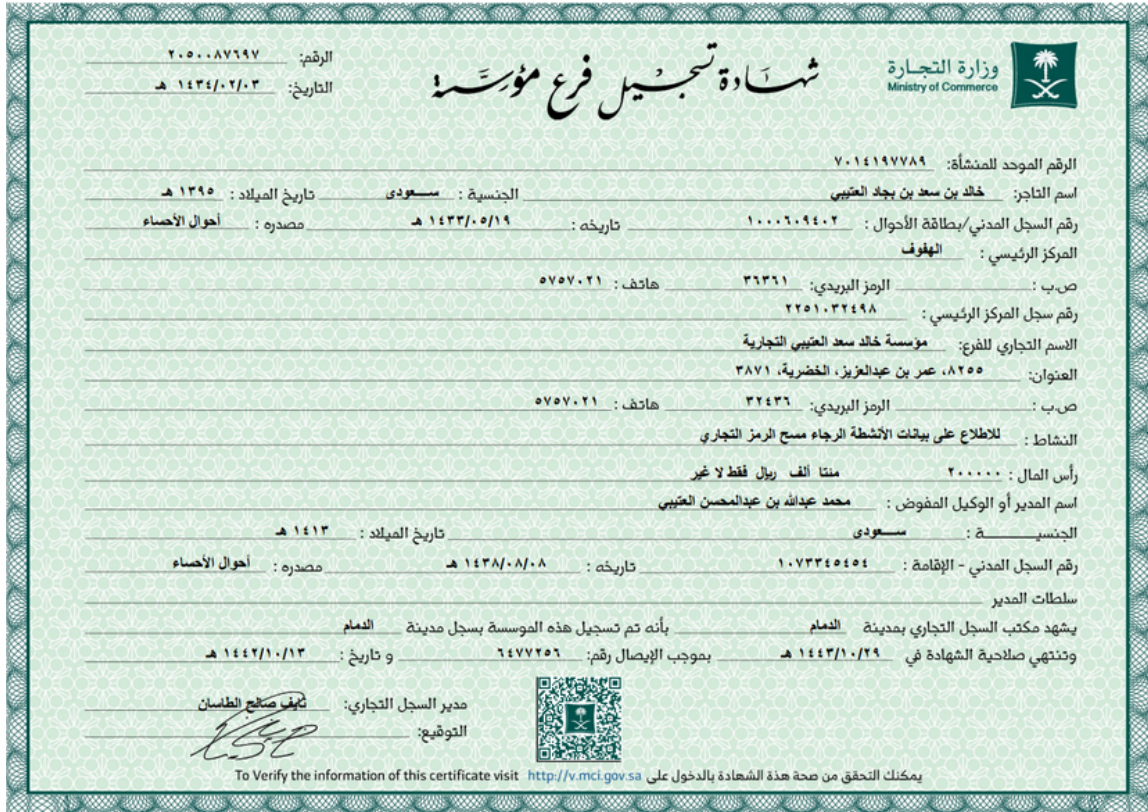 وزارة التجارة
Ministry of Commerce
شهادة تسجيل فرع مؤسسة
الرقم: ٢٠٥٠٠٨٧٦٩٧
التاريخ: ١٤٣٤/٠٢/٠٣ هـ
الرقم الموحد للمنشأة: ٧٠١٤١٩٧٧٨٩
اسم التاجر: خالد بن سعد بن بجاد العتيبي الجنسية : سعودى تاريخ الميلاد : ١٣٩٥ هـ
رقم السجل المدني/بطاقة الأحوال : ١٠٠٠٦٠٩٤٠٢ تاريخه : ١٤٣٣/٠٥/١٩ هـ مصدره : أحوال الأحساء
المركز الرئيسي : الهفوف
ص.ب : الرمز البريدي: ٣٦٣٦١ هاتف : ٥٧٥٧٠٢١
رقم سجل المركز الرئيسي : ٢٢٥١٠٣٢٤٩٨
الاسم التجاري للفرع: مؤسسة خالد سعد العتيبي التجارية
العنوان: ٨٢٥٥، عمر بن عبدالعزيز، الخضرية، ٣٨٧١
ص.ب : الرمز البريدي: ٣٢٤٣٦ هاتف : ٥٧٥٧٠٢١
النشاط : للاطلاع على بيانات الأنشطة الرجاء مسح الرمز التجاري
رأس المال : ٢٠٠٠٠٠ مئتا ألف ريال فقط لا غير
اسم المدير أو الوكيل المفوض : محمد عبدالله بن عبدالمحسن العتيبي
الجنسيـــــــة : سعودى تاريخ الميلاد : ١٤١٣ هـ
رقم السجل المدني - الإقامة : ١٠٧٣٣٤٥٤٥٤ تاريخه : ١٤٣٨/٠٨/٠٨ هـ مصدره : أحوال الأحساء
سلطات المدير
يشهد مكتب السجل التجاري بمدينة الدمام بأنه تم تسجيل هذه الموسسة بسجل مدينة الدمام
وتنتهي صلاحية الشهادة في ١٤٤٣/١٠/٢٩ هـ بموجب الإيصال رقم: ٦٤٧٧٢٥٦ و تاريخ : ١٤٤٢/١٠/١٣ هـ
مدير السجل التجاري: نايف صالح الطاسان
التوقيع:
يمكنك التحقق من صحة هذة الشهادة بالدخول على To Verify the information of this certificate visit http://v.mci.gov.sa